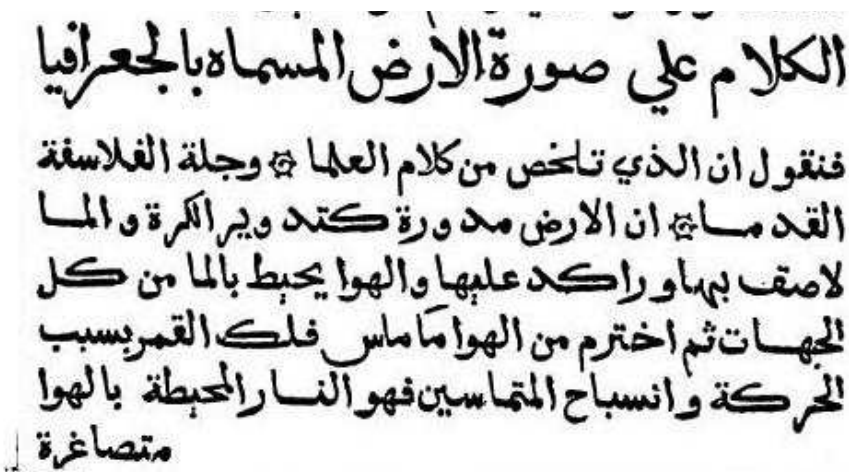 الكلام علي صورة الارض المسماه بالجعرافيا
فنقول ان الذي تلخص من كلام العلما ۞ وجلة الفلاسفة
القدمــا ۞ ان الارض مدورة كتدوير الكرة والمــا
لاصق بها وراكد عليها والهوا يحيط بالما من كل
الجهــات ثم اخترم من الهوا ما ماس فلك القمر بسبب
الحركة وانسباح المتماسين فهو النــار المحيطة بالهوا
متصاغرة